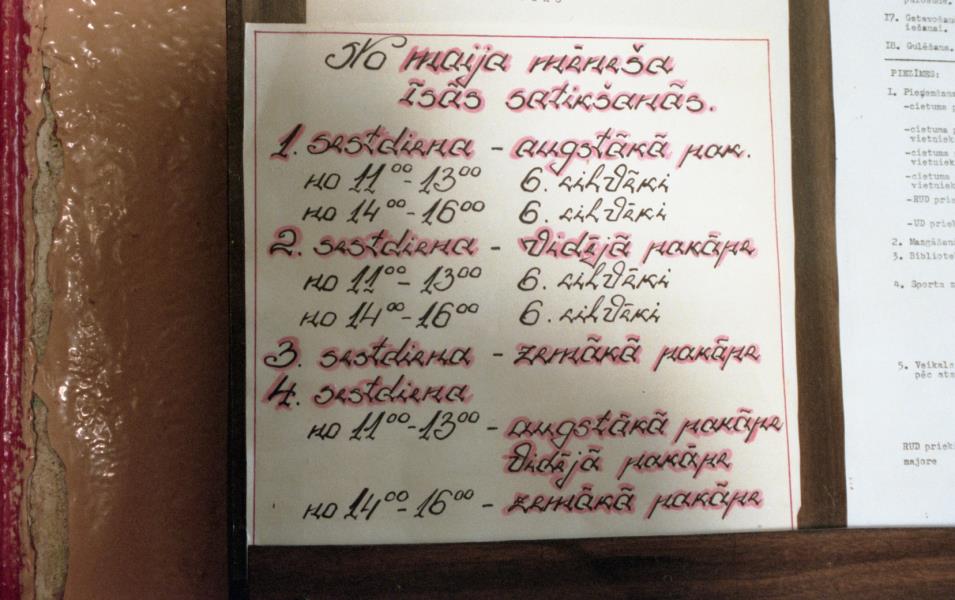 No maija mēneša
īsās satikšanās.
1. sestdiena - augstākā pak.
no 11⁰⁰-13⁰⁰ 6. cilvēki
no 14⁰⁰-16⁰⁰ 6. cilvēki
2. sestdiena - vidējā pakāpe
no 11⁰⁰-13⁰⁰ 6. cilvēki
no 14⁰⁰-16⁰⁰ 6. cilvēki
3. sestdiena - zemākā pakāpe
4. sestdiena
no 11⁰⁰-13⁰⁰ - augstākā pakāpe
vidējā pakāpe
no 14⁰⁰-16⁰⁰ - zemākā pakāpe
17.
18. Gulēšana.
PIEZĪMES:
1.
-cietuma
-cietuma
vietniek
-cietuma
vietniek
-cietuma
vietniek
-RUD prie
-UD priek
2.
3. Bibliote
4. Sporta
5. Veikals
pēc
RUD priek
majore